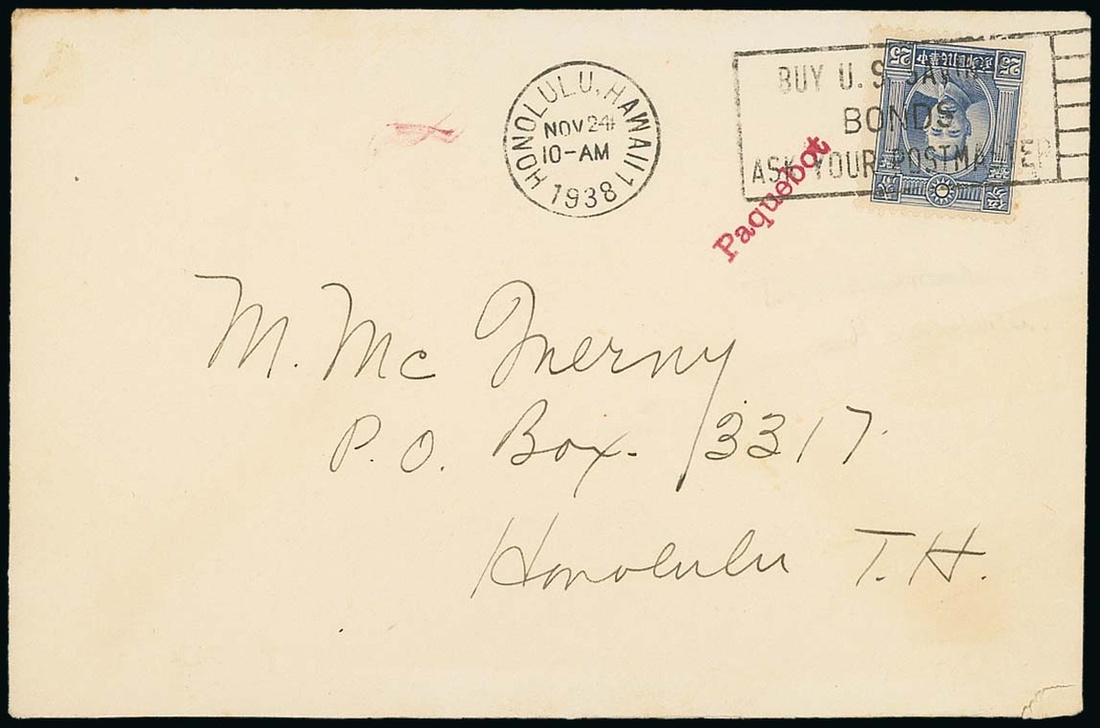 HONOLULU, HAWAII 1
NOV 24
10-AM
1938
BUY U.S. SAVINGS
BONDS
ASK YOUR POSTMASTER
25 25
Paquebot
M. Mc Inerny
P.O. Box. 3317.
Honolulu T.H.